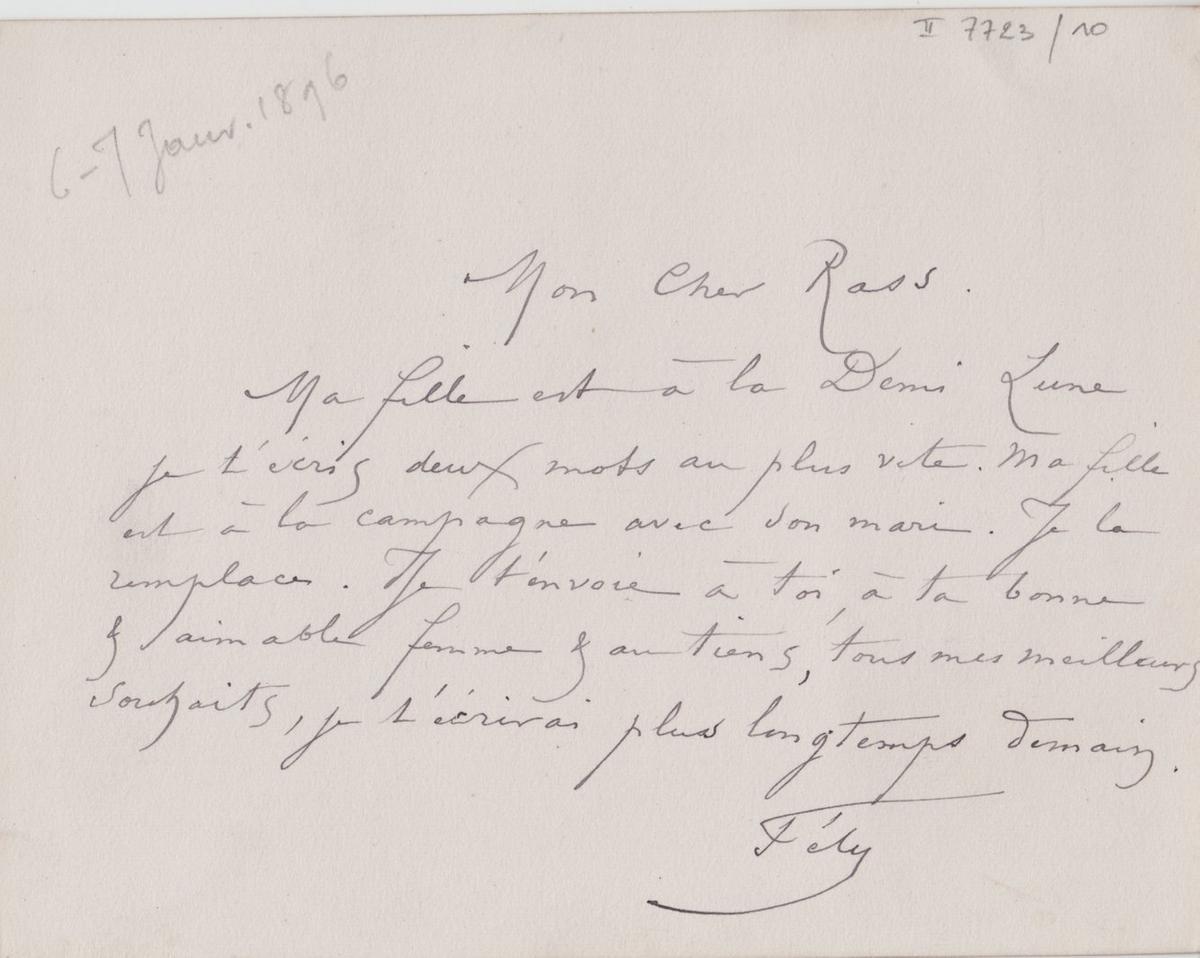 II 7723/10
6-7 Janv. 1896
Mon Cher Rass.
Ma fille est à la Demi Lune
je t'écris deux mots au plus vite. Ma fille
est à la campagne avec son mari. Je la
remplace. Je t'envoie à toi, à ta bonne
& aimable femme & au tiens, tous mes meilleurs
souhaits, je t'écrirai plus longtemps demain.
Fély